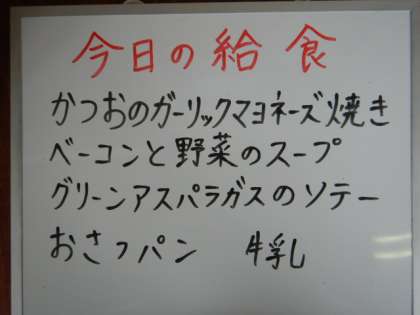 今日の給食
かつおのガーリックマヨネーズ焼き
ベーコンと野菜のスープ
グリーンアスパラガスのソテー
おさつパン 牛乳